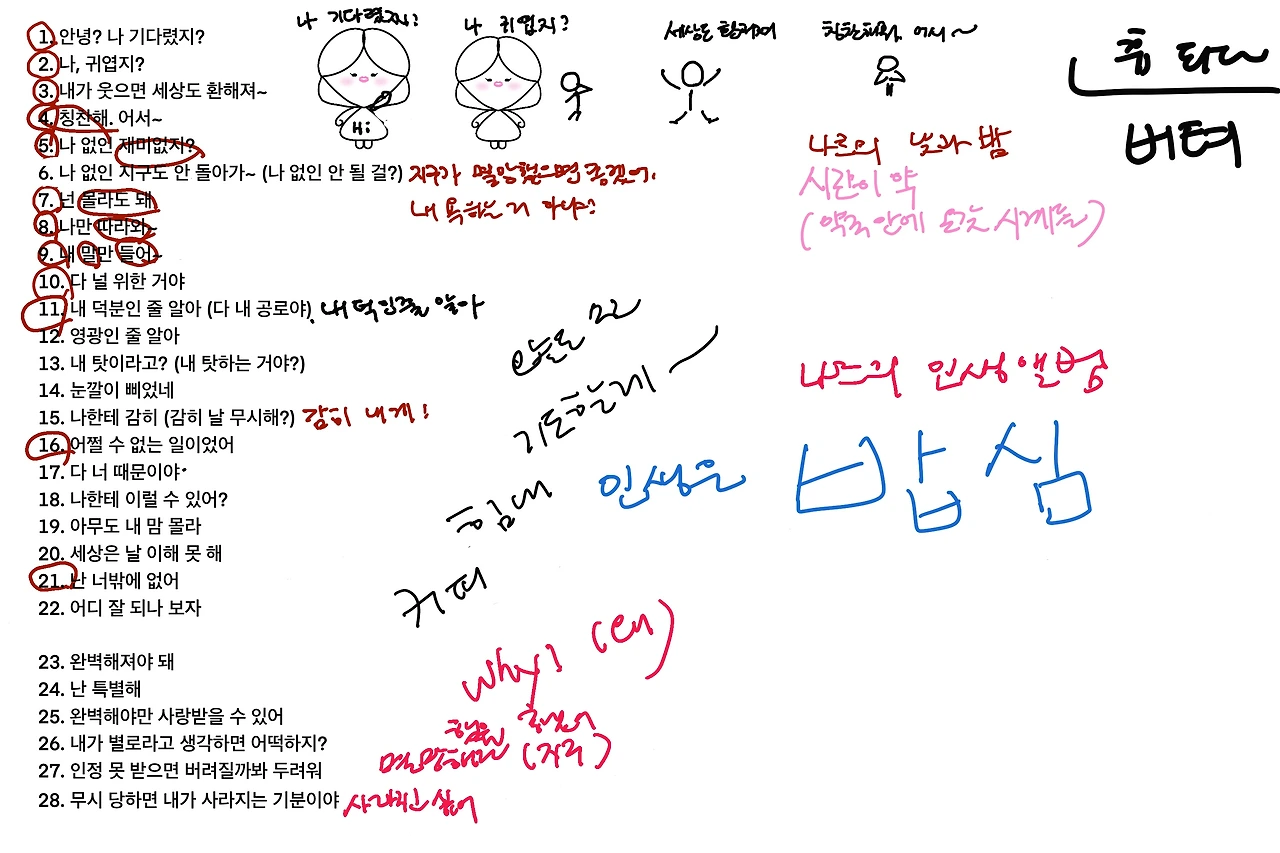 1. 안녕? 나 기다렸지?
2. 나, 귀엽지?
3. 내가 웃으면 세상도 환해져~
4. 칭찬해. 어서~
5. 나 없인 재미없지?
6. 나 없인 지구도 안 돌아가~ (나 없인 안 될 걸?) 지구가 멸망했으면 좋겠어.
내 욕하는 거 아냐?
7. 넌 몰라도 돼
8. 나만 따라와~
9. 내 말만 들어~
10. 다 널 위한 거야
11. 내 덕분인 줄 알아 (다 내 공로야). 내 덕인줄 알아
12. 영광인 줄 알아
13. 내 탓이라고? (내 탓하는 거야?)
14. 눈깔이 삐었네
15. 나한테 감히 (감히 날 무시해?) 감히 내게!
16. 어쩔 수 없는 일이었어
17. 다 너 때문이야
18. 나한테 이럴 수 있어?
19. 아무도 내 맘 몰라
20. 세상은 날 이해 못 해
21. 난 너밖에 없어
22. 어디 잘 되나 보자
23. 완벽해져야 돼
24. 난 특별해
25. 완벽해야만 사랑받을 수 있어
26. 내가 별로라고 생각하면 어떡하지?
27. 인정 못 받으면 버려질까봐 두려워
28. 무시 당하면 내가 사라지는 기분이야 사라지고 싶어
나 기다렸지?
Hi
나 귀엽지?
세상은
어서~
춤 춘다
버텨
나르의 낮과 밤
시간이 약
(약국 안에 시계들)
나르의 인생앨범
인생은 밥심
오늘도
기도할게
힘내
커피
why?
(지구)